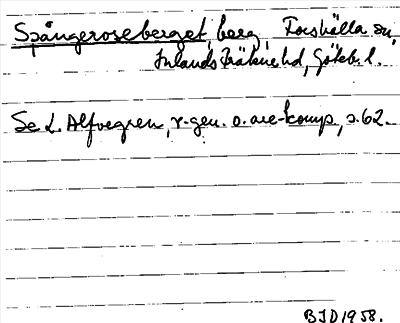 Spångeroseberget, berg, Forshälla sn,
Inlands Fräkne hd, Göteb. l.
Se L. Alfvegren, r-gen. o. are-komp, s. 62.
BJD 1958.